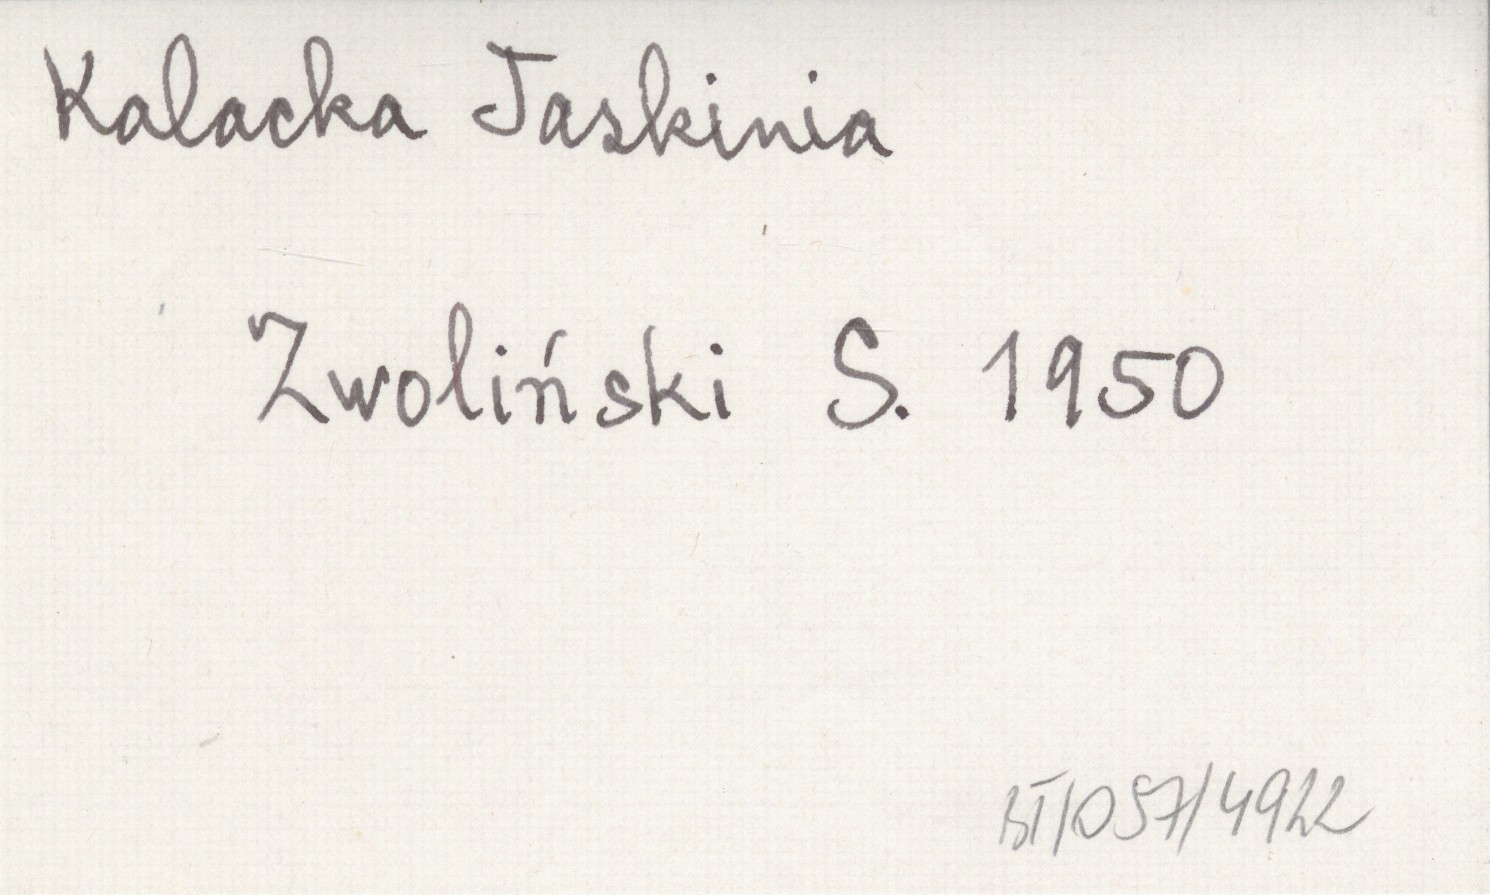 Kalacka Jaskinia
Zwoliński S. 1950
BT/057/4922